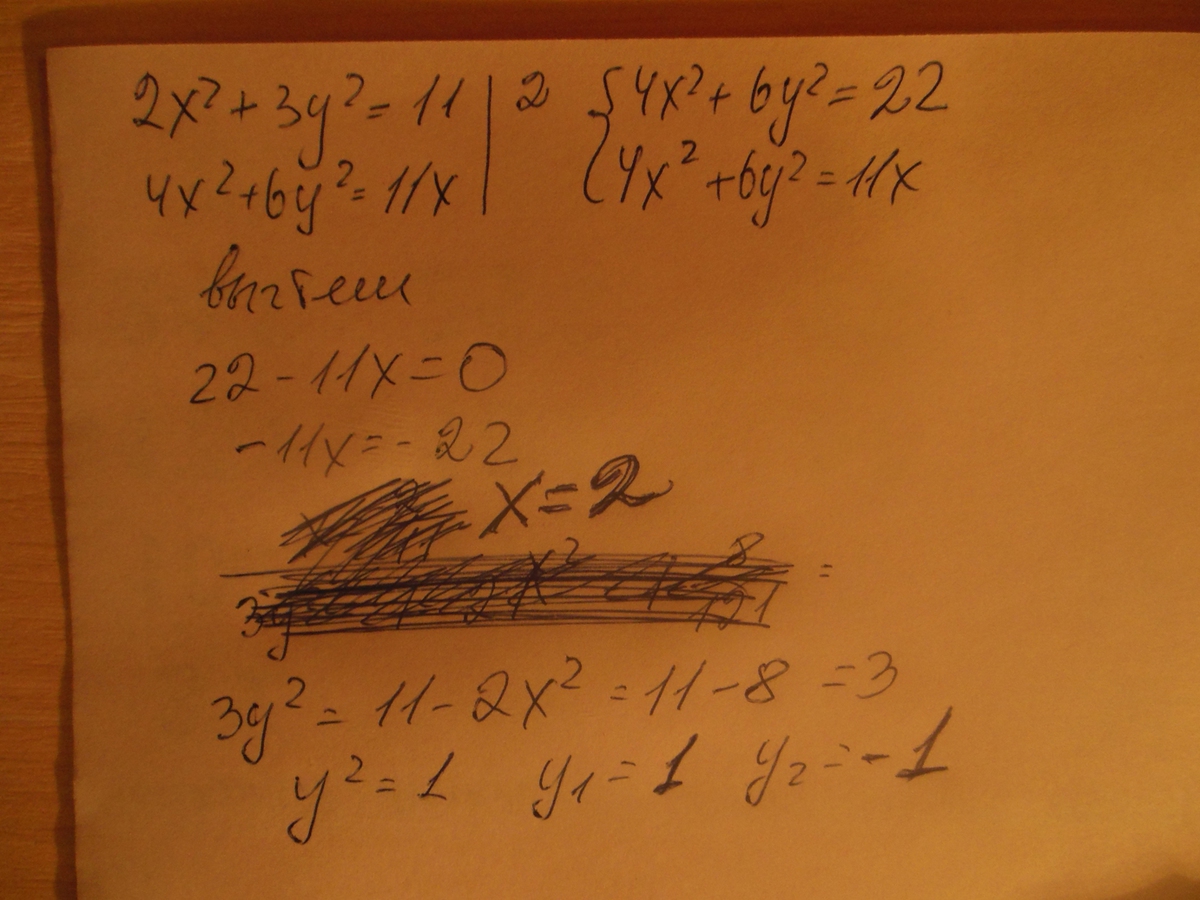 2x² + 3y² = 11 | 2 { 4x² + 6y² = 22
4x² + 6y² = 11x | { 4x² + 6y² = 11x
вычтем
22 - 11x = 0
-11x = -22
x = 2
=
3y² = 11 - 2x² = 11 - 8 = 3
y² = 1 y₁ = 1 y₂ = -1